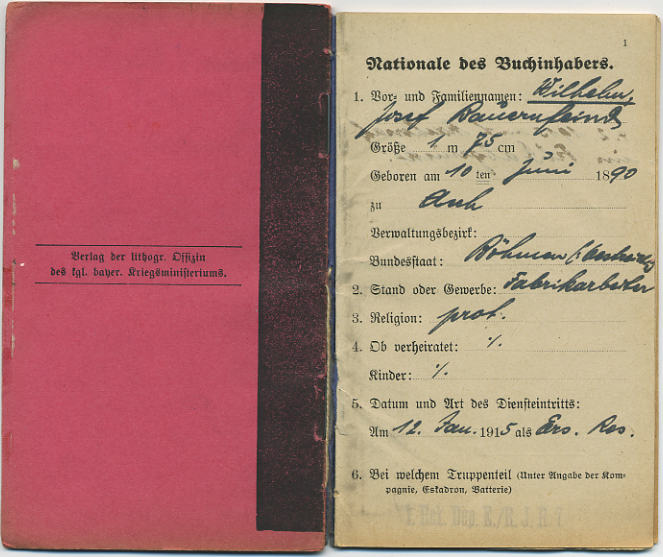 Verlag der lithogr. Offizin
des kgl. bayer. Kriegsministeriums.
1
Nationale des Buchinhabers.
1. Vor- und Familiennamen: Wilhelm,
Josef Bauernfeind
Größe 1 m 75 cm
Geboren am 10 ten Juni 1890
zu Asch
Verwaltungsbezirk:
Bundesstaat: Böhmen
2. Stand oder Gewerbe: Fabrikarbeiter
3. Religion: prot.
4. Ob verheiratet: %.
Kinder: %.
5. Datum und Art des Diensteintritts:
Am 12. Jan. 1915 als Ers. Res.
6. Bei welchem Truppenteil (Unter Angabe der Kom-
pagnie, Eskadron, Batterie)